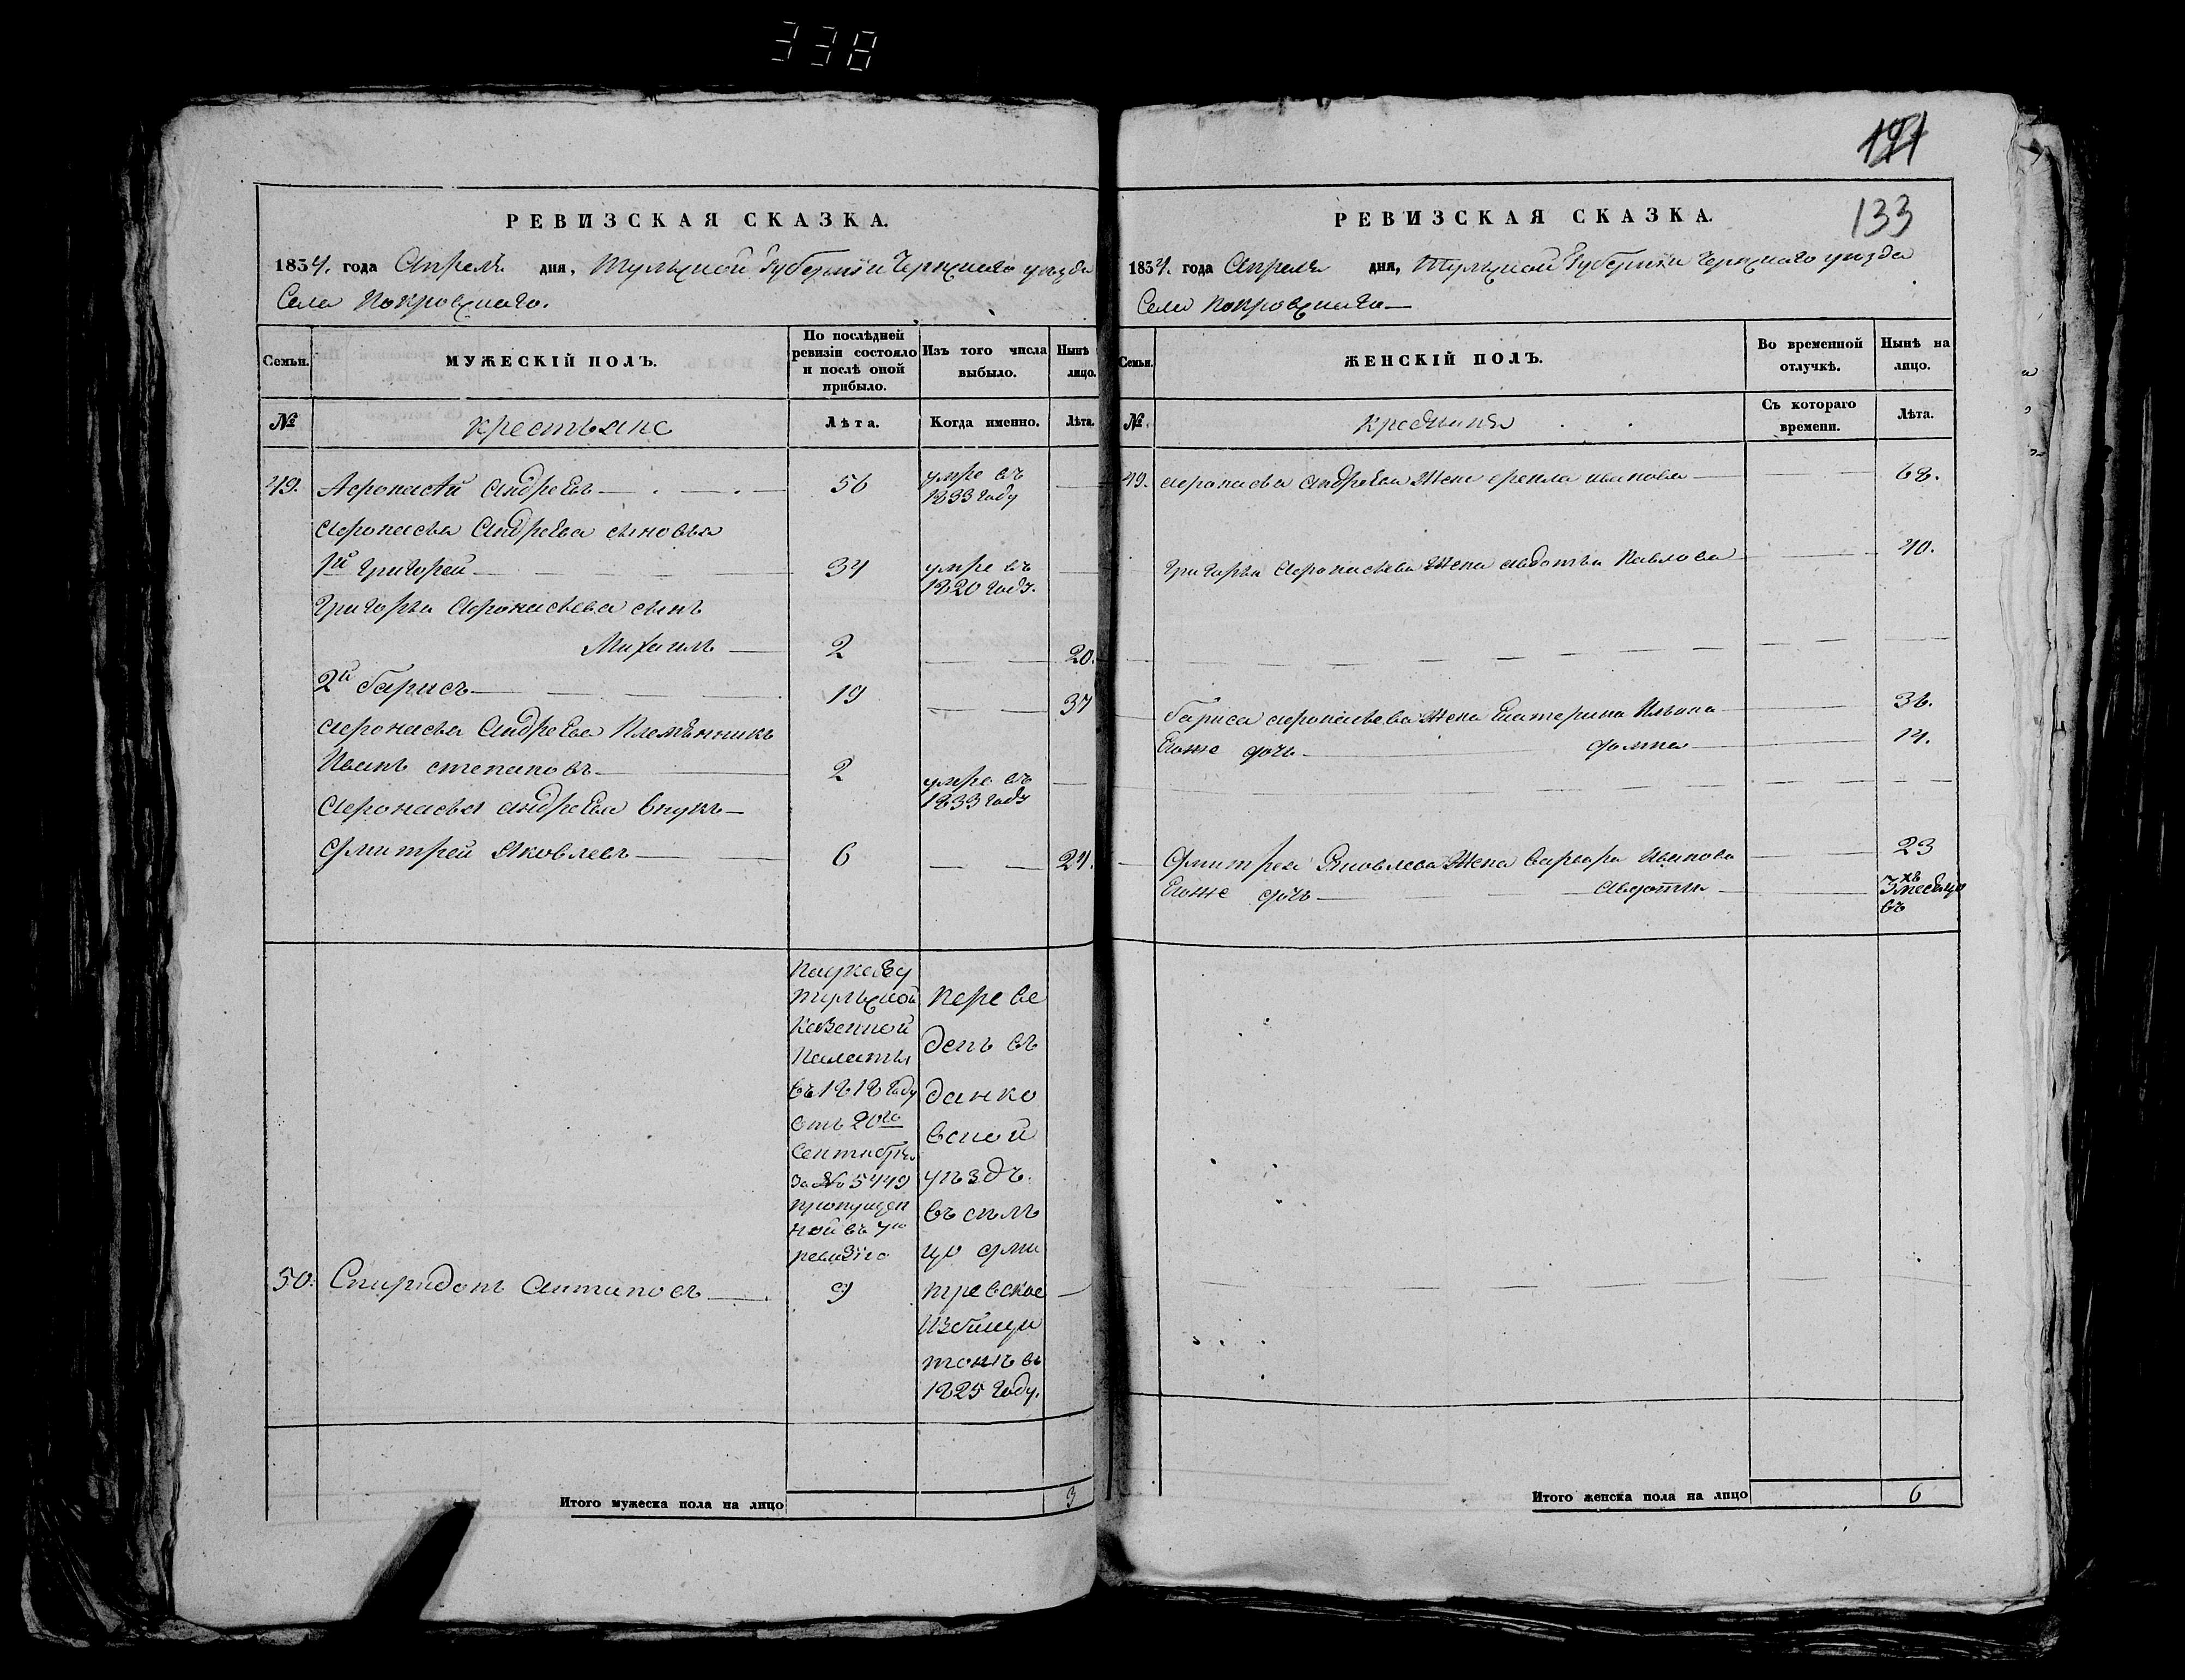 338
РЕВИЗСКАЯ СКАЗКА.
1834. года Апреля дня, Тульской Губернии Чернского уезда
Села Покровскаго.
Семьи.
МУЖЕСКІЙ ПОЛЪ.
По послѣдней ревизіи состояло и послѣ оной прибыло.
Изъ того числа выбыло.
Нынѣ лицо.
№
крестьяне
Лѣта.
Когда именно.
Лѣта.
49. Афонасей Андреевъ 56 умре въ 1833 году
Афонасья Андреева сыновья
1й Григорей 34 умре въ 1820 году.
Григорья Афонасьева сынъ
Михаилъ 2 20.
2й Барисъ 19 37
Афонасья Андреева Племенникъ
Иванъ степановъ 2 умре въ 1833 году
Афонасья андреева внукъ
Дмитрей Яковлевъ 6 24.
По указу
тульской
Казенной
Палаты
въ 1818 году
отъ 20го
Сентября
за № 5449
пропущен
ной въ 7ю
ревизію
50. Спиридонъ Антиповъ 9
переве
денъ въ
данко
вской
уездъ
въ сель
цо дми
тревское
тожъ въ
1825 году.
Итого мужеска пола на лицо 3
133
РЕВИЗСКАЯ СКАЗКА.
1834. года Апреля дня, Тульской Губернии Чернского уезда
Села Покровскаго
Семьи.
ЖЕНСКІЙ ПОЛЪ.
Во временной отлучкѣ.
Нынѣ на лицо.
№.
Съ котораго времени.
Лѣта.
49. Афонасья Андреева Жена Иванова 68.
Григорья Афонасьева Жена Авдотья Павлова 40.
Бариса Афонасьева Жена Катерина Ильина 36.
Егоже дочь Домна 14.
Дмитрея Яковлева Жена Варвара Иванова 23
Егоже дочь Авдотья 3хъ месецовъ
Итого женска пола на лицо 6